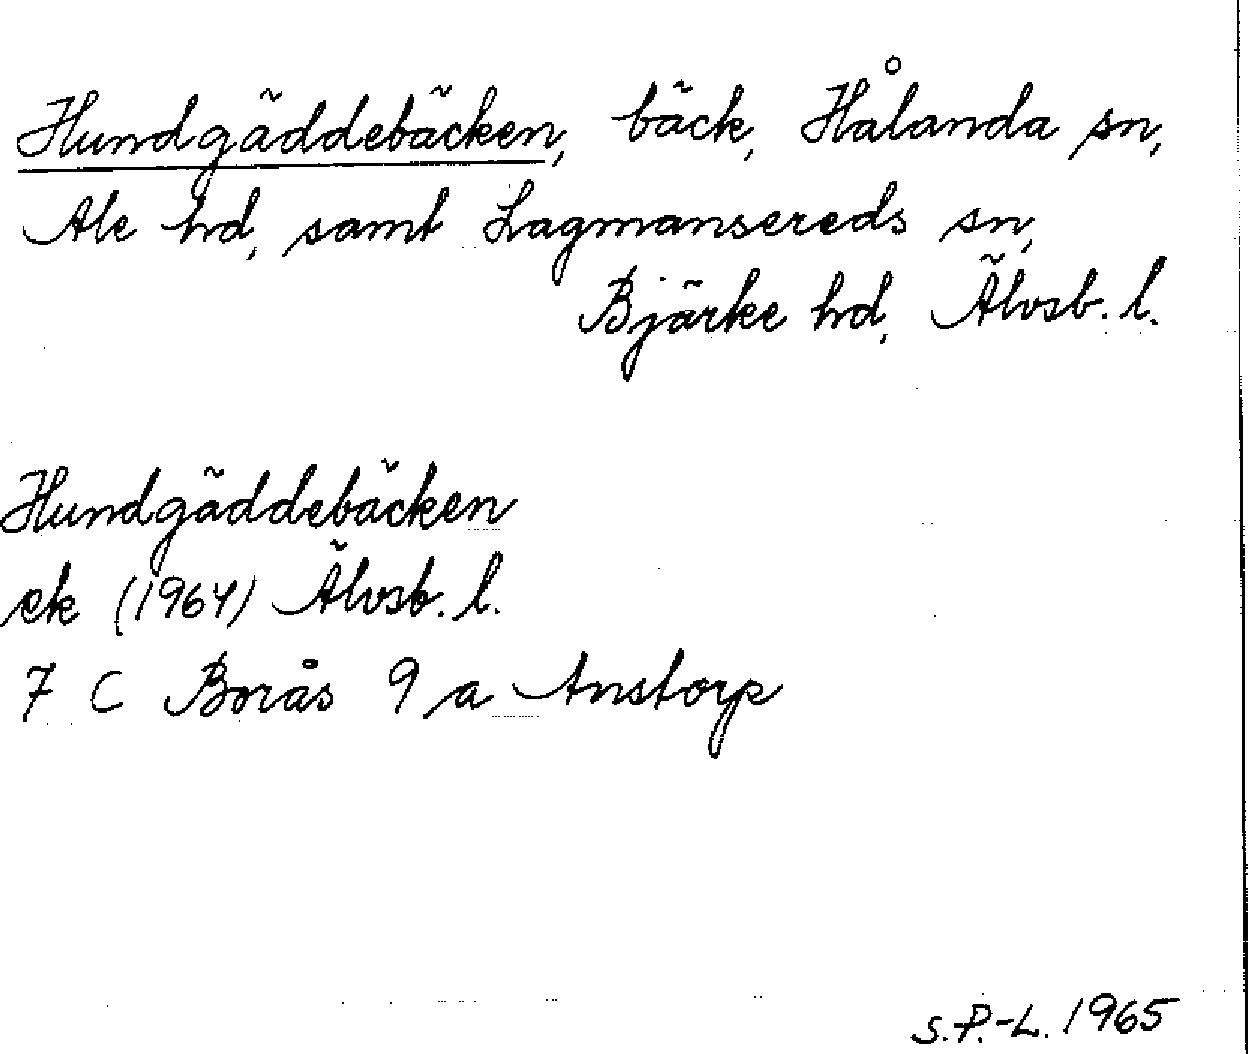 Hundgäddebäcken, bäck, Hålanda sn,
Ale hd, samt Lagmansereds sn,
Bjärke hd, Älvsb. l.
Hundgäddebäcken
ek (1964) Älvsb. l.
7 C Borås 9 a Anstorp
S.P.-L. 1965